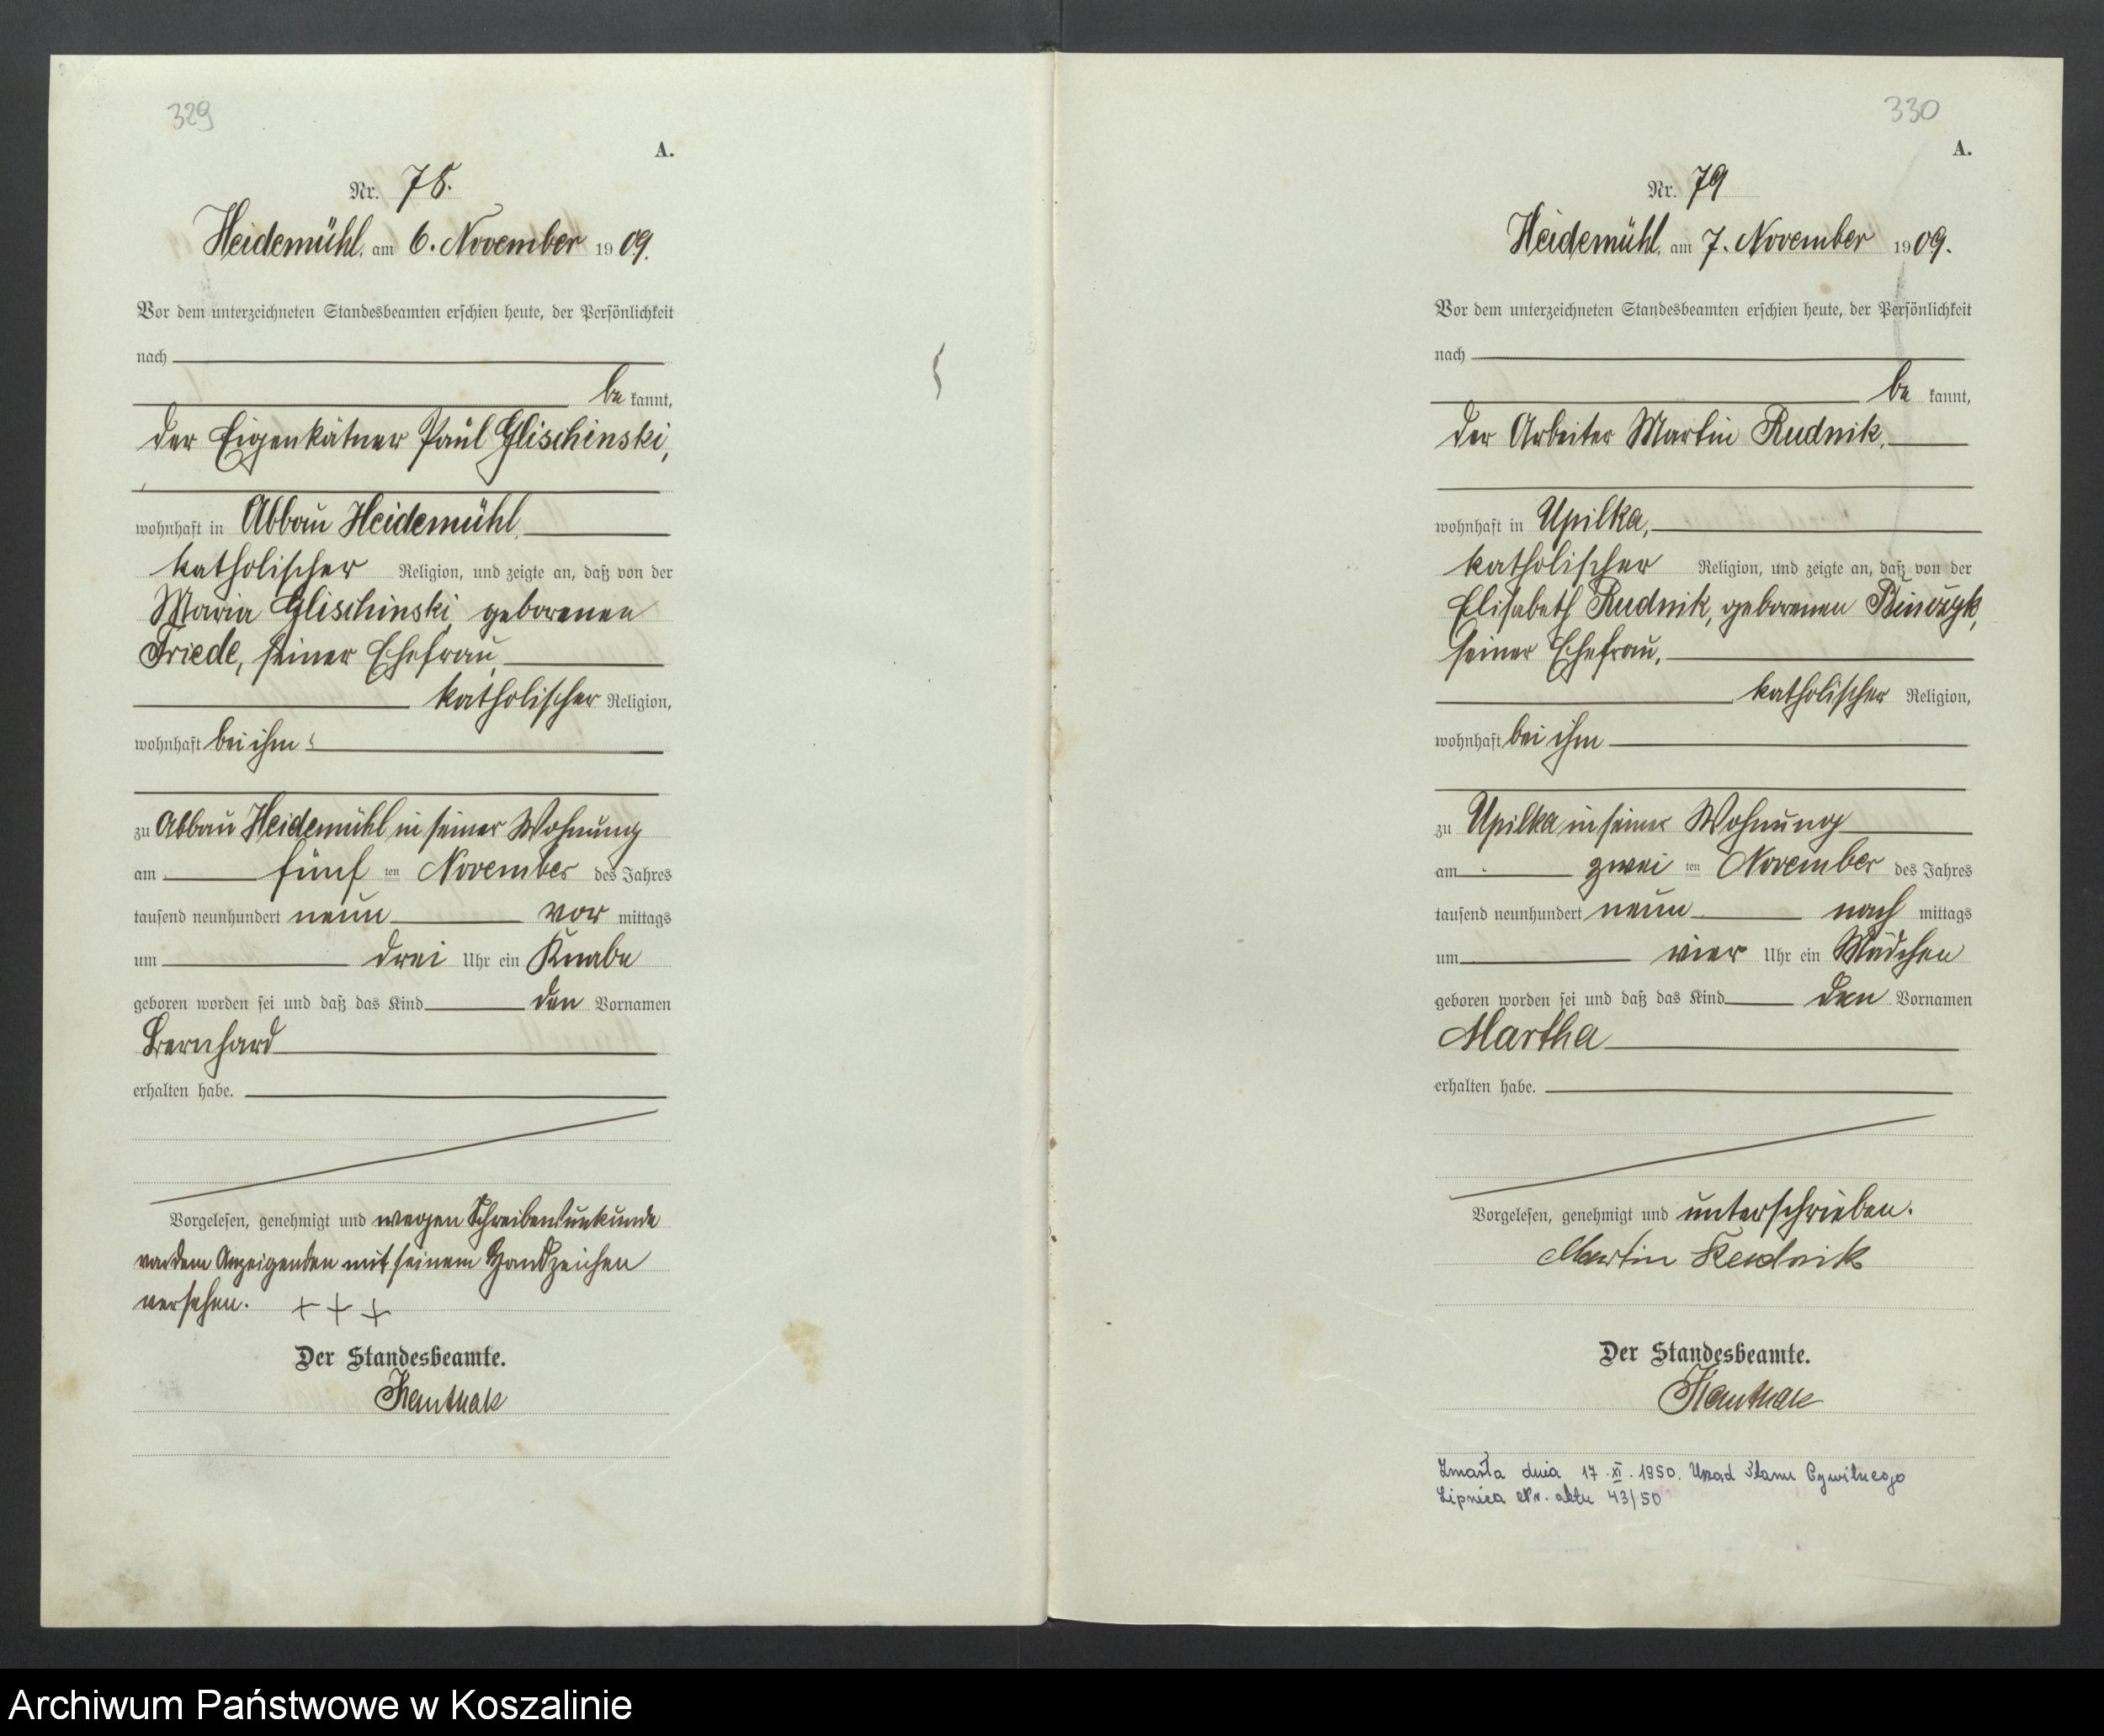 329
A.
Nr. 78.
Heidemühl, am 6. November 1909.
Vor dem unterzeichneten Standesbeamten erschien heute, der Persönlichkeit
nach
be kannt,
der Eigenkätner Paul Glischinski,
wohnhaft in Abbau Heidemühl,
katholischer Religion, und zeigte an, daß von der
Maria Glischinski, geborenen
Friede, seiner Ehefrau,
katholischer Religion,
wohnhaft bei ihm
zu Abbau Heidemühl in seiner Wohnung
am fünf ten November des Jahres
tausend neunhundert neun vor mittags
um drei Uhr ein Knabe
geboren worden sei und daß das Kind den Vornamen
Bernhard
erhalten habe.
Vorgelesen, genehmigt und wegen Schreibensunkunde
von dem Anzeigenden mit seinem Handzeichen
versehen. + + +
Der Standesbeamte.
330
A.
Nr. 79
Heidemühl, am 7. November 1909.
Vor dem unterzeichneten Standesbeamten erschien heute, der Persönlichkeit
nach
be kannt,
der Arbeiter Martin Rudnik,
wohnhaft in Upilka,
katholischer Religion, und zeigte an, daß von der
Elisabeth Rudnik, geborenen Binczyk,
seiner Ehefrau,
katholischer Religion,
wohnhaft bei ihm
zu Upilka in seiner Wohnung
am zwei ten November des Jahres
tausend neunhundert neun nach mittags
um vier Uhr ein Mädchen
geboren worden sei und daß das Kind den Vornamen
Martha
erhalten habe.
Vorgelesen, genehmigt und unterschrieben.
Martin Rudnik
Der Standesbeamte.
Zmarła dnia 17.XI.1950. Urząd Stanu Cywilnego
Lipnica Nr. aktu 43/50
Archiwum Państwowe w Koszalinie